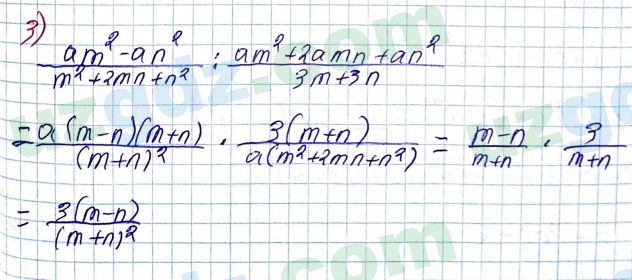 3)
am²-an² / m²+2mn+n² : am²+2amn+an² / 3m+3n
= a(m-n)(m+n) / (m+n)² · 3(m+n) / a(m²+2mn+n²) = m-n / m+n · 3 / m+n
= 3(m-n) / (m+n)²
uzgdz.com